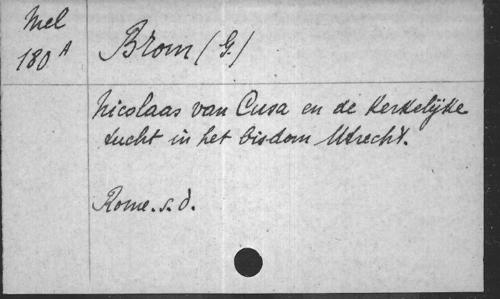 Mel
180 A
Brom (G.)
Nicolaas van Cusa en de Kerkelijke
tucht in het bisdom Utrecht.
Rome. s. d.